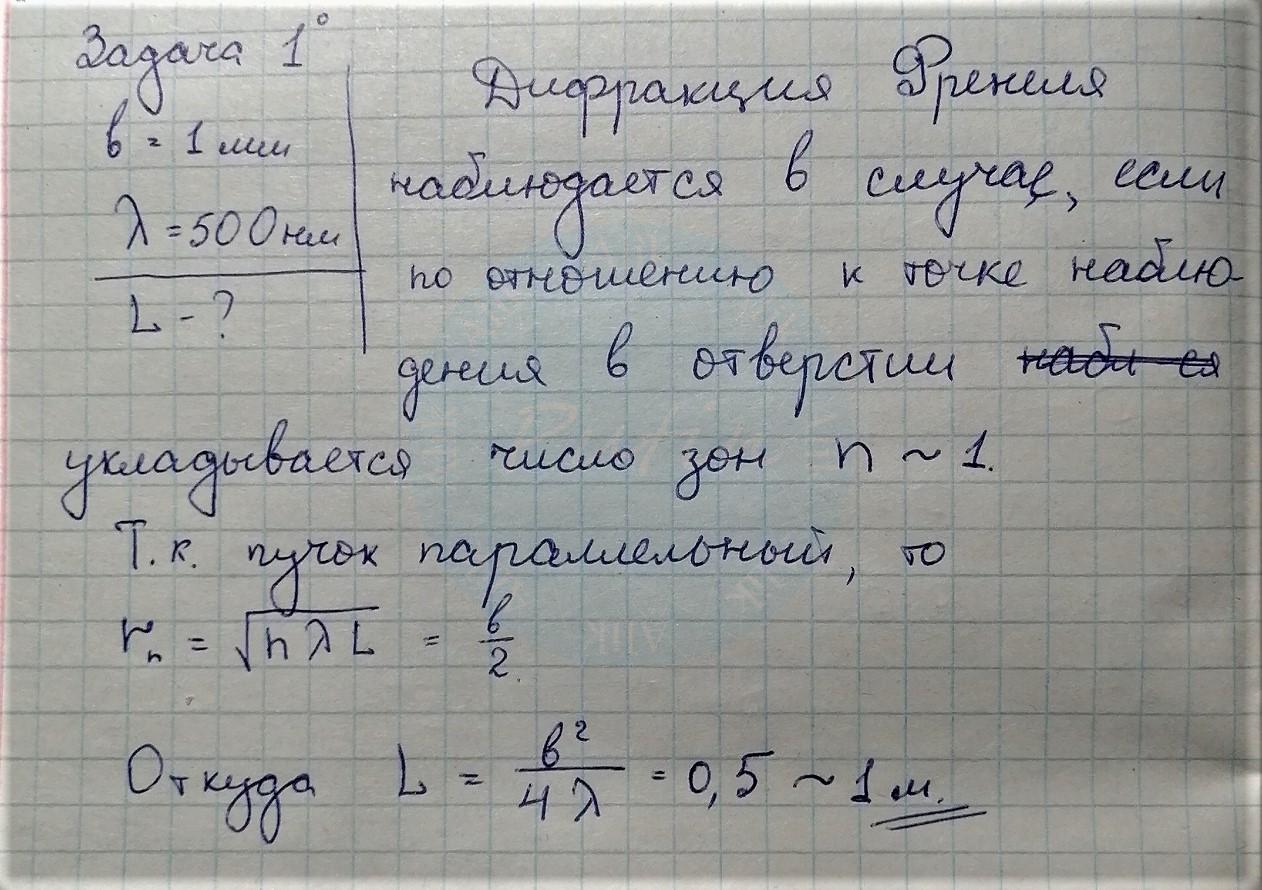 Задача 1°
b = 1 мм
λ = 500 нм
L - ?
Дифракция Френеля
наблюдается в случае, если
по отношению к точке наблю-
дения в отверстии
укладывается число зон n ~ 1.
Т.к. пучок параллельный, то
rₙ = √(nλL) = b/2
Откуда L = b²/4λ = 0,5 ~ 1 м.
Alik